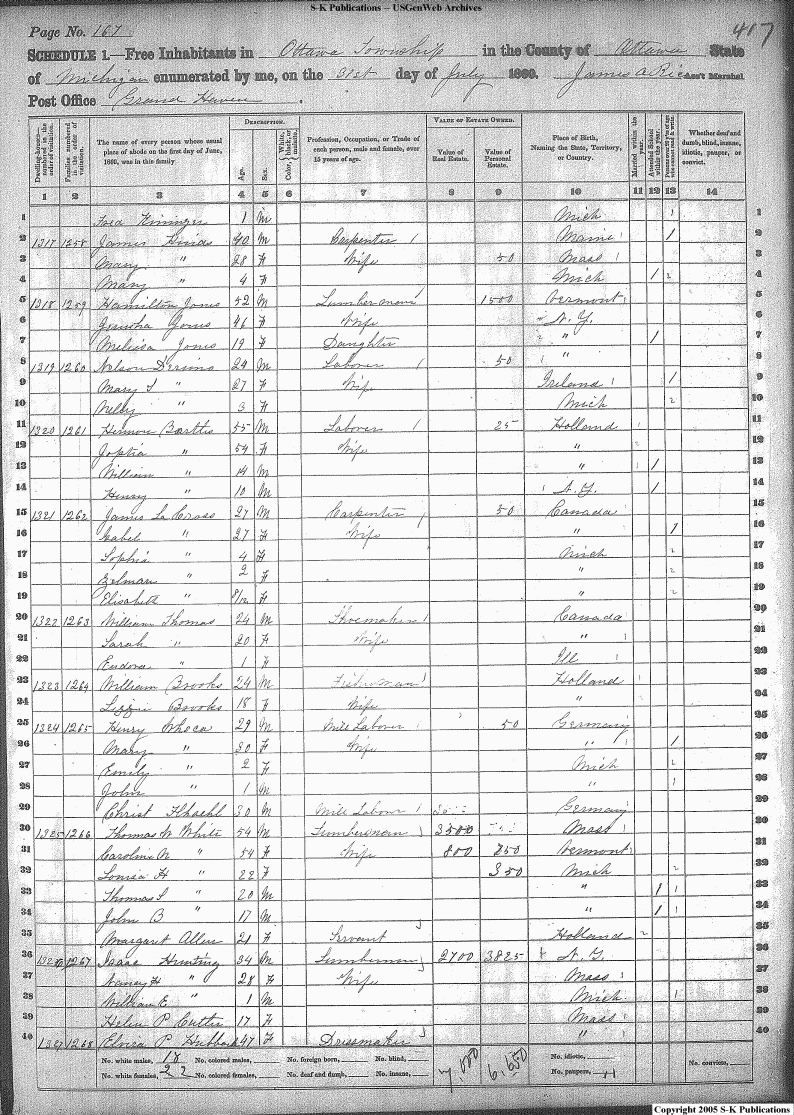 S-K Publications – USGenWeb Archives
Page No. 167 407
SCHEDULE 1.—Free Inhabitants in Ottawa Township in the County of Ottawa State
of Michigan enumerated by me, on the 31st day of July 1860. James A Rice Ass't Marshal.
Post Office Grand Haven.
DESCRIPTION. VALUE OF ESTATE OWNED.
Dwelling-houses—numbered in the order of visitation. Families numbered in the order of visitation. The name of every person whose usual place of abode on the first day of June, 1860, was in this family. Age. Sex. Color, White, black, or mulatto. Profession, Occupation, or Trade of each person, male and female, over 15 years of age. Value of Real Estate. Value of Personal Estate. Place of Birth, Naming the State, Territory, or Country. Married within the year. Attended School within the year. Persons over 20 y'rs of age who cannot read & write. Whether deaf and dumb, blind, insane, idiotic, pauper, or convict.
1 2 3 4 5 6 7 8 9 10 11 12 13 14
1 Fred 1 M Mich 1 1
2 1317 1258 James Hinds 40 M Carpenter 1 Maine 1 1 2
3 Mary " 28 F Wife 50 Mass 1 3
4 Mary " 4 F Mich 1 2 4
5 1318 1259 Hamilton Jones 52 M Lumberman 1 1500 Vermont 5
6 Jerusha Jones 46 F Wife N.Y. 6
7 Melissa Jones 19 F Daughter " 1 7
8 1319 1260 Nelson 24 M Laborer 1 50 " 8
9 Mary S " 27 F Wife Ireland 1 1 9
10 Nelly " 3 F Mich 2 10
11 1320 1261 Barttis 55 M Laborer 1 25 Holland 11
12 " 54 F Wife " 12
13 William " 14 M " 1 13
14 Henry " 10 M N.Y. 1 14
15 1321 1262 James La Cross 27 M Carpenter 1 50 Canada 15
16 Isabel " 27 F Wife " 1 16
17 Sophia " 4 F Mich 2 17
18 " 2 F " 2 18
19 Elisabeth " 8/12 F " 2 19
20 1322 1263 William Thomas 24 M Shoemaker 1 Canada 20
21 Sarah " 20 F Wife " 1 21
22 Eudora " 1 F Ill 1 22
23 1323 1264 William Brooks 24 M Fisherman 1 Holland 23
24 Lizzie Brooks 18 F Wife " 24
25 1324 1265 Henry 29 M Mill Laborer 50 Germany 25
26 Mary " 30 F Wife " 1 1 26
27 Emily " 2 F Mich 2 27
28 John " 1 M " 1 28
29 Christ 30 M Mill Labour 1 Germany 29
30 1325 1266 Thomas W White 54 M Lumberman 3500 Mass 1 30
31 Caroline N " 54 F Wife 800 250 Vermont 31
32 Louisa H " 22 F 350 Mich 2 32
33 Thomas S " 20 M " 1 1 33
34 John B " 17 M " 1 1 34
35 Margaret Allen 21 F Servant Holland 2 35
36 1326 1267 Isaac Hunting 34 M Lumberman 2700 3825 N.Y. 36
37 H " 28 F Wife Mass 1 37
38 William E " 1 M Mich 1 38
39 Helen P Cutler 17 F Mass 39
40 1327 1268 P Hubbard 47 F Dressmaker " 1 40
No. white males, 18 No. colored males, No. foreign born, No. blind, 7,000 6,650 No. idiotic, No. convicts,
No. white females, 22 No. colored females, No. deaf and dumb, No. insane, No. paupers, 11
Copyright 2005 S-K Publications